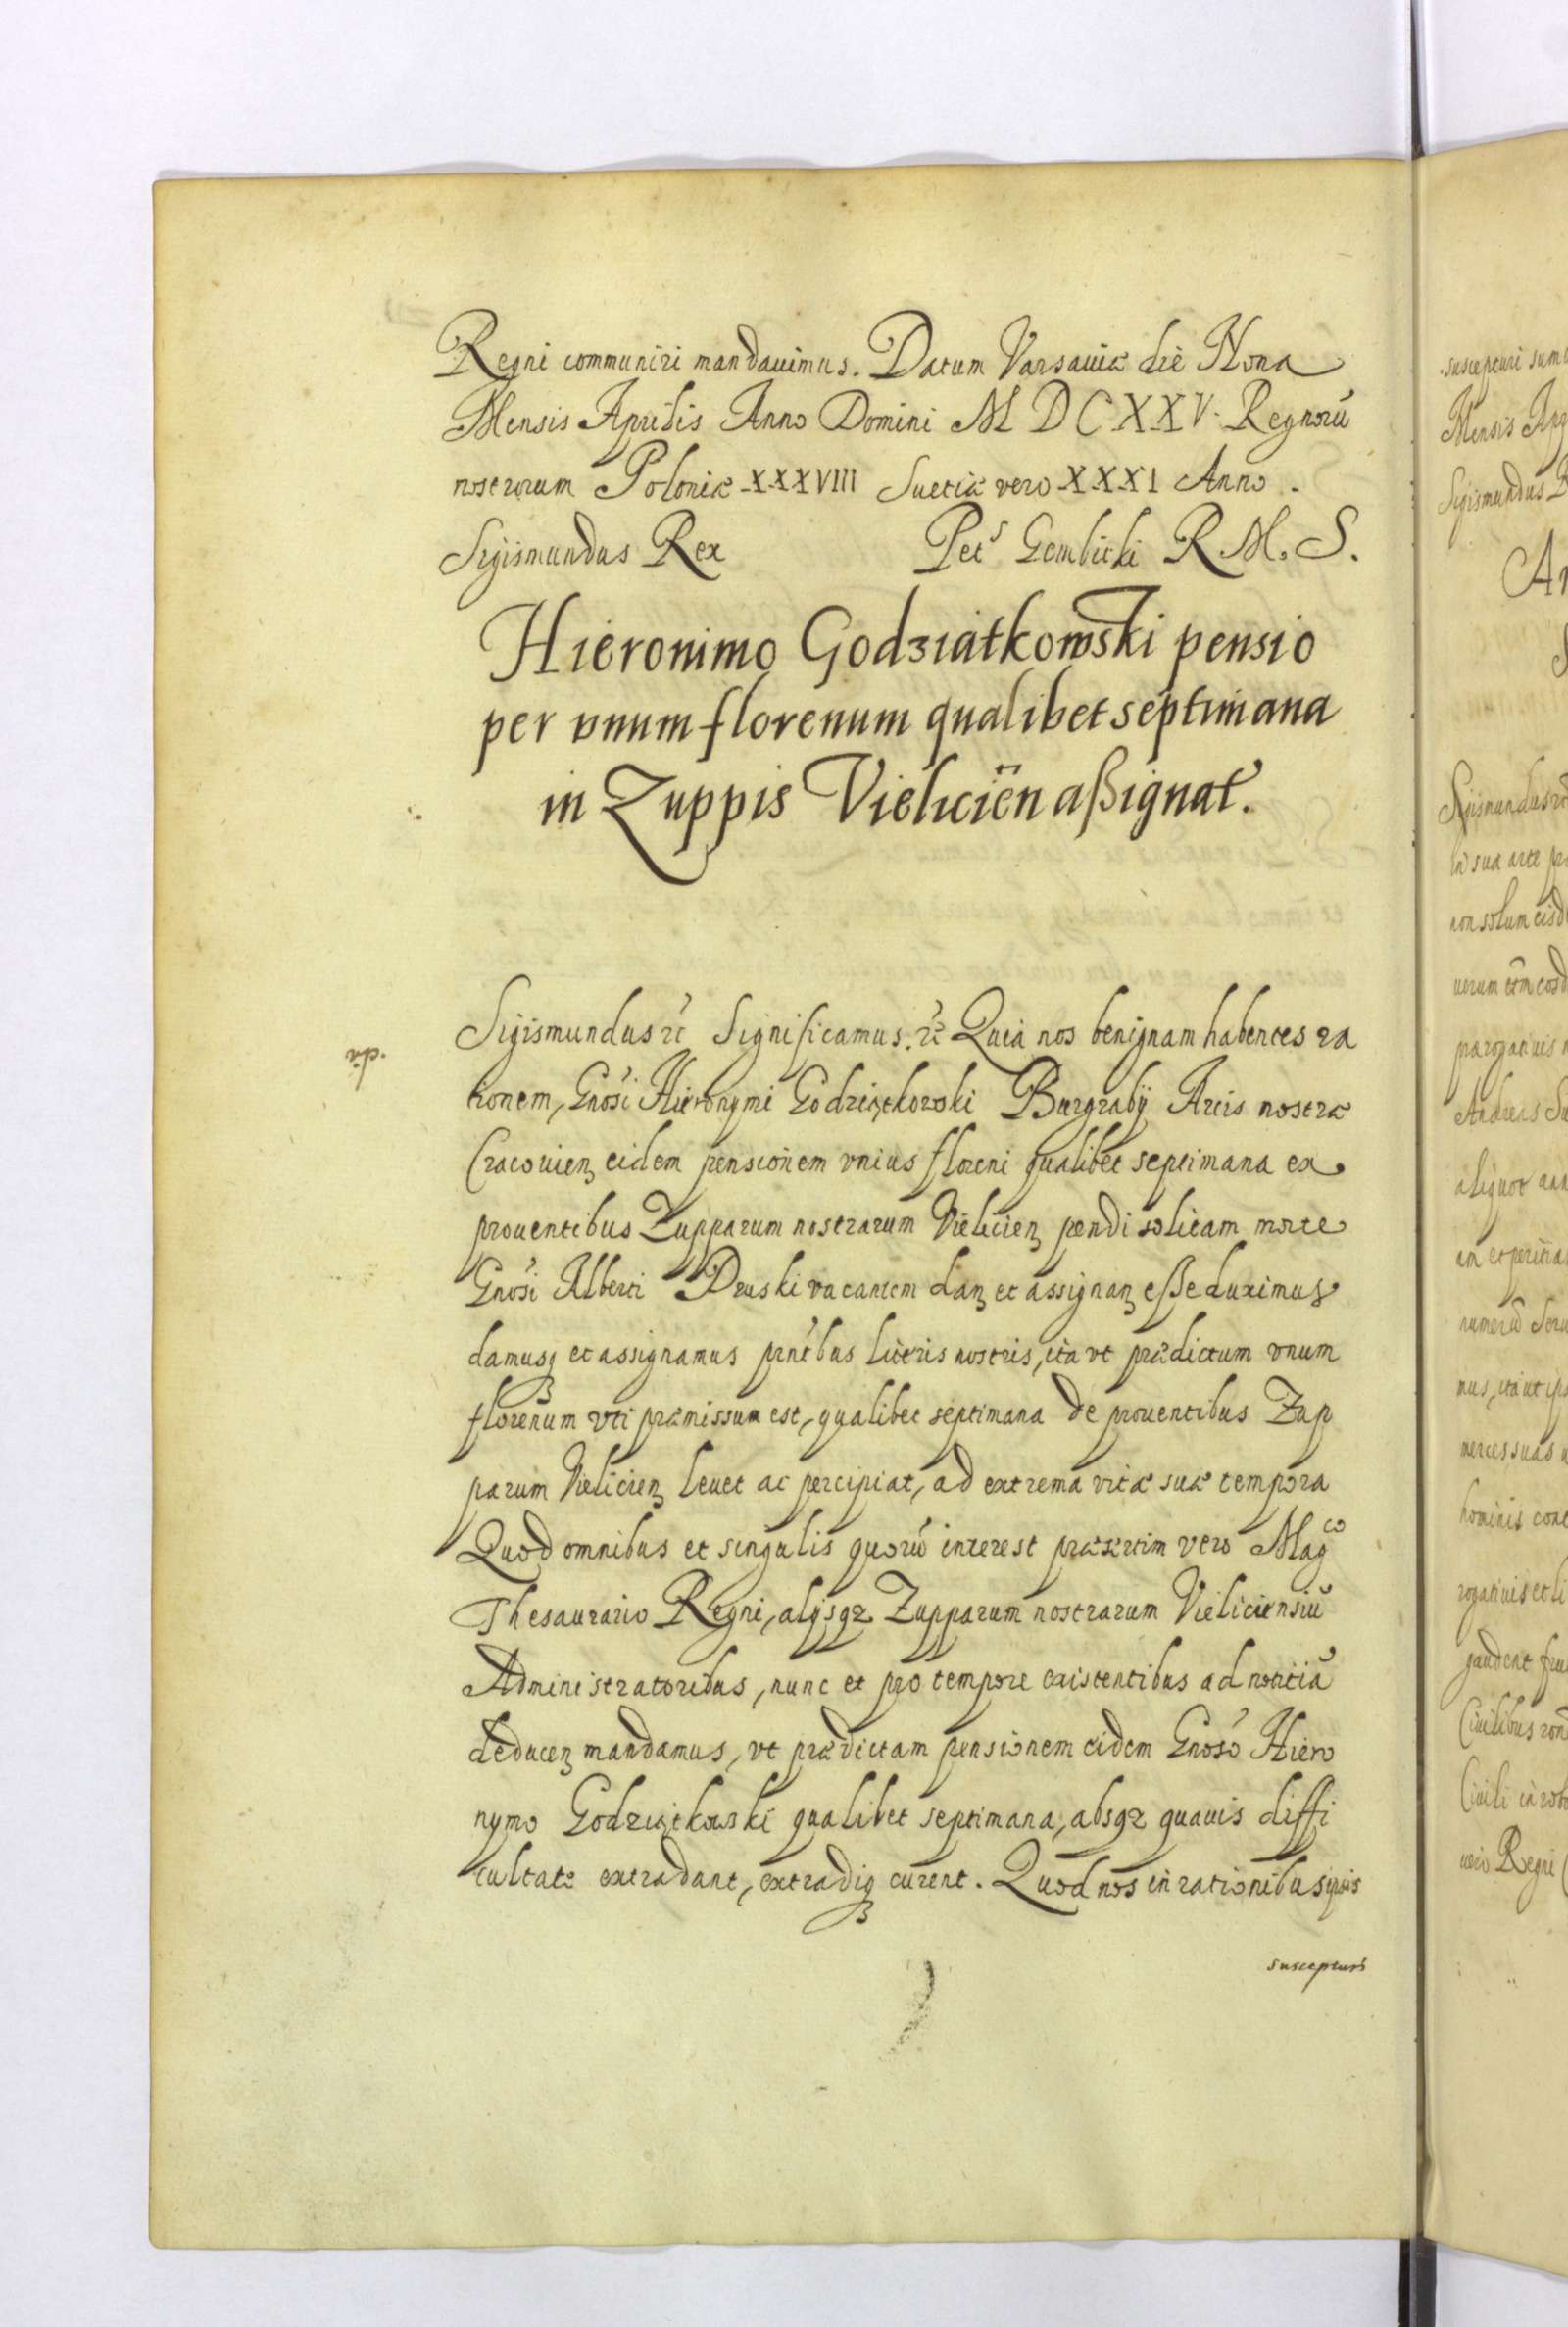 Regni communiri mandauimus. Datum Varsauiæ die Nona
Mensis Aprilis Anno Domini M D C X X V. Regnorũ
nostrorum Poloniæ XXXVIII Suetiæ vero XXXI Anno.
Sigismundus Rex Petˢ Gembicki R. M. S.
Hieronimo Godziatkowski pensio
per vnum florenum qualibet septimana
in Zuppis Vieliciẽn aßignat.
Sigismundus ꝛc̃ Significamus. ꝛc̃ Quia nos benignam habentes ra
tionem, Gnosi Hieronymi Godziątkowski Burgrabÿ Arcis nostræ
Cracouien̄ eidem pensionem vnius floreni qualibet septimana ex
prouentibus Zupparum nostrarum Vielicien̄ pendi solitam morte
Gnosi Alberti Pruski vacantem dan̄ et assignan̄ eße duximus
damusq̨ et assignamus pñtibus literis nostris, ita vt prædictum vnum
florenum vti præmissum est, qualibet septimana de prouentibus Zup
parum Vielicien̄ leuet ac percipiat, ad extrema vitæ suæ tempora
Quod omnibus et singulis quorũ interest præsertim vero Magᶜᵒ
Thesaurario Regni, alÿsqz Zupparum nostrarum Vieliciensiũ
Administratoribus, nunc et pro tempore existentibus ad notitiã
deducen̄ mandamus, vt prædictam pensionem eidem Gnoso Hiero
nymo Godziątkowski qualibet septimana, absqz quauis diffi
cultate extradant, extradiq̨ curent. Quod nos in rationibus ipsis
suscepturi
suscepturi sum
Mensis Ap
Sigismundus
Sigismundus ꝛc̃
in sua arte pr
non solum eisd
uerum etm̃ eosd
Andreas Su
aliquot an
numerũ Seru
nus, ita ut ips
merces suas
hominis cont
gaudent fru
Ciuilibus
Ciuili in
Regni